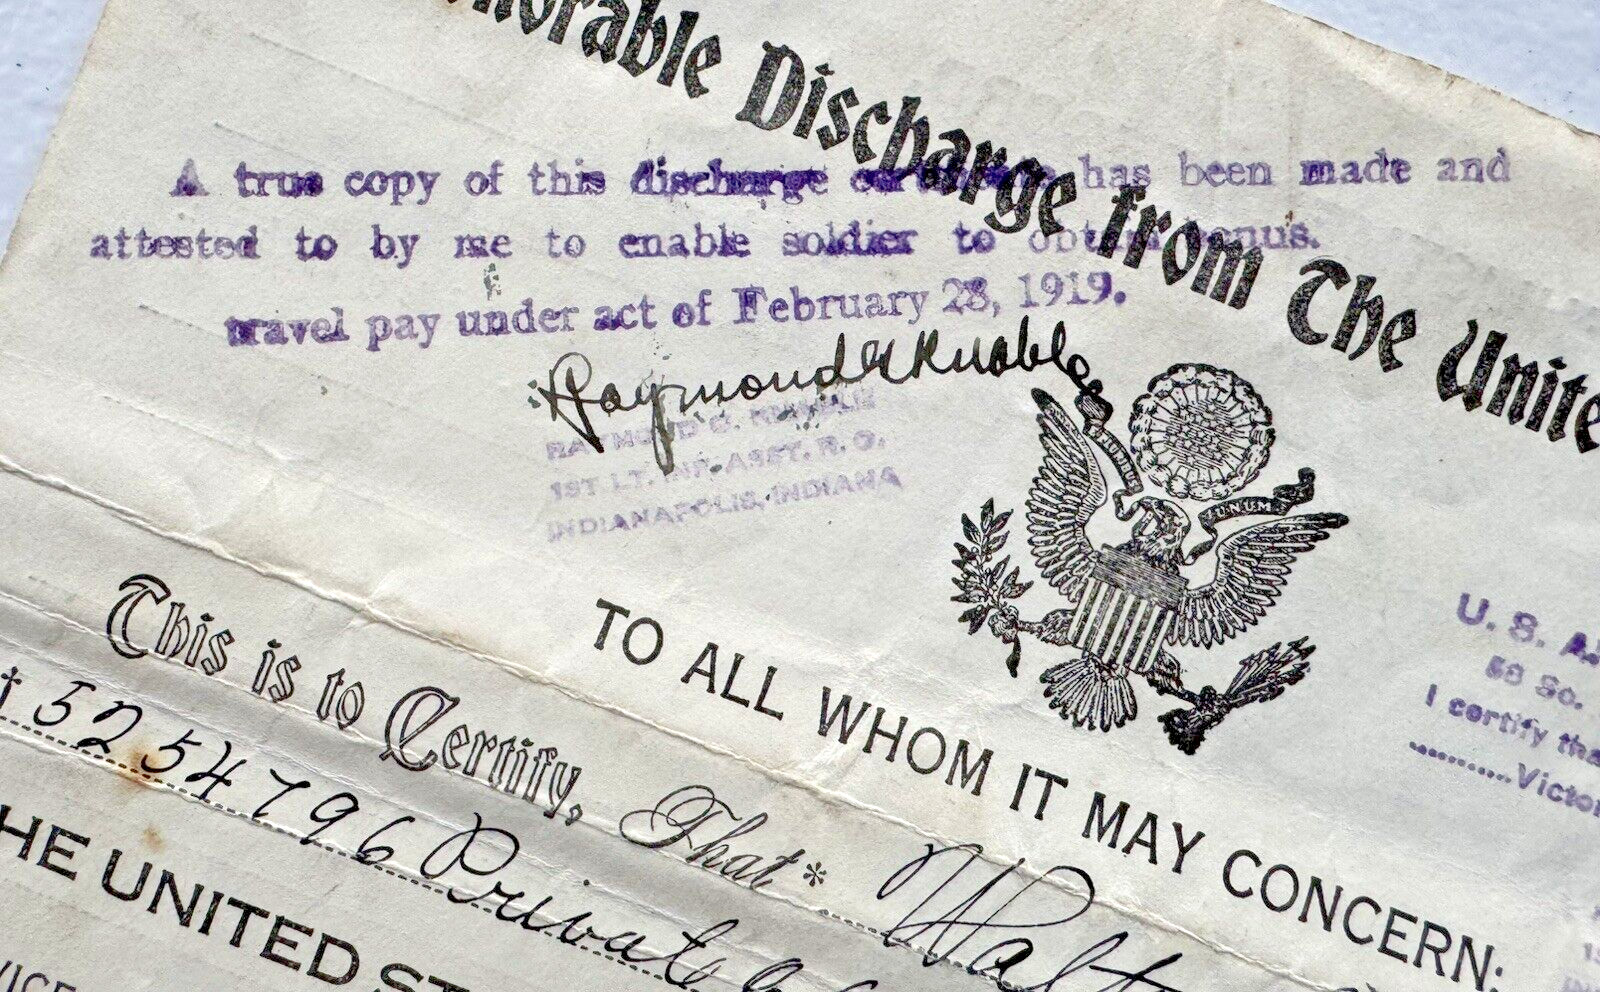 Honorable Discharge from The Unite
A true copy of this discharge certificate has been made and
attested to by me to enable soldier to obtain bonus.
travel pay under act of February 28, 1919.
Raymond G Knoble
1ST LT. INF. ASST. R. O.
INDIANAPOLIS, INDIANA
UNUM
U. S. A.
58 So.
I certify tha
..........Victor
TO ALL WHOM IT MAY CONCERN:
This is to Certify, That* Walt
5254796 Private
HE UNITED ST
VICE